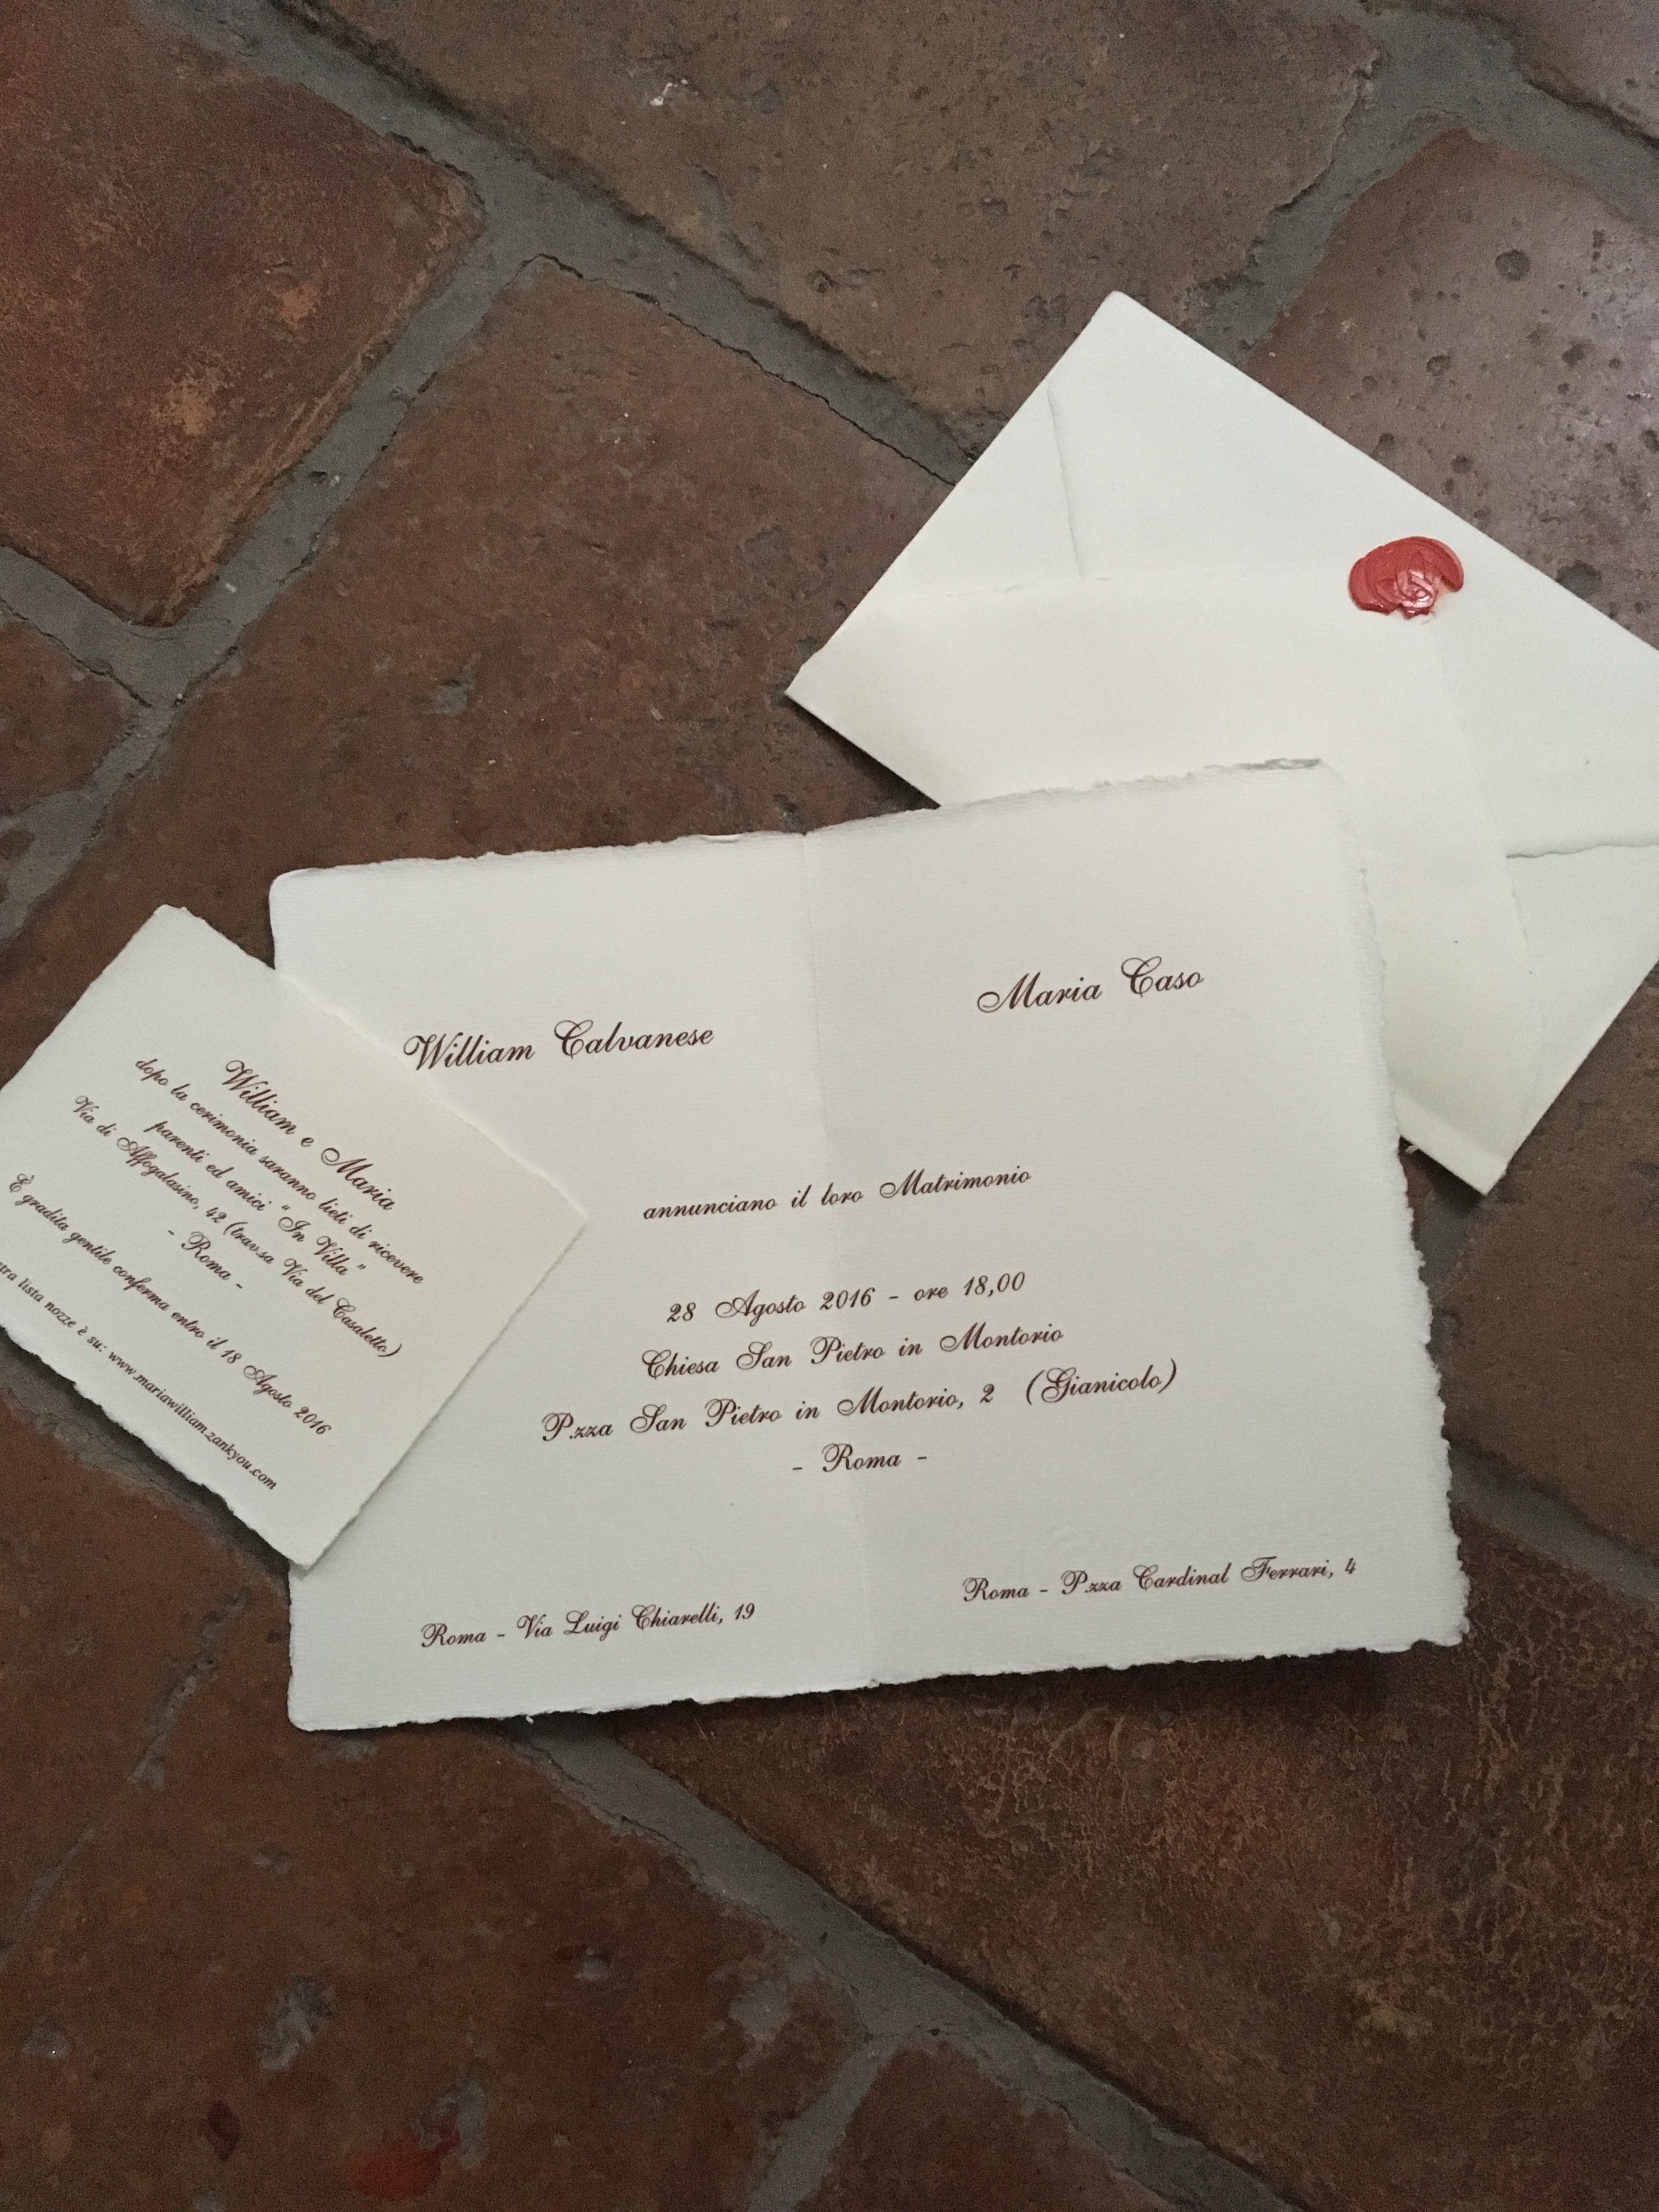 William Calvanese
Maria Caso
annunciano il loro Matrimonio
28 Agosto 2016 - ore 18,00
Chiesa San Pietro in Montorio
P.zza San Pietro in Montorio, 2 (Gianicolo)
- Roma -
Roma - Via Luigi Chiarelli, 19
Roma - P.zza Cardinal Ferrari, 4
William e Maria
dopo la cerimonia saranno lieti di ricevere
parenti ed amici "In Villa"
Via di Affogalasino, 42 (trav.sa Via del Casaletto)
- Roma -
È gradita gentile conferma entro il 18 Agosto 2016
lista nozze è su: www.mariawilliam.zankyou.com